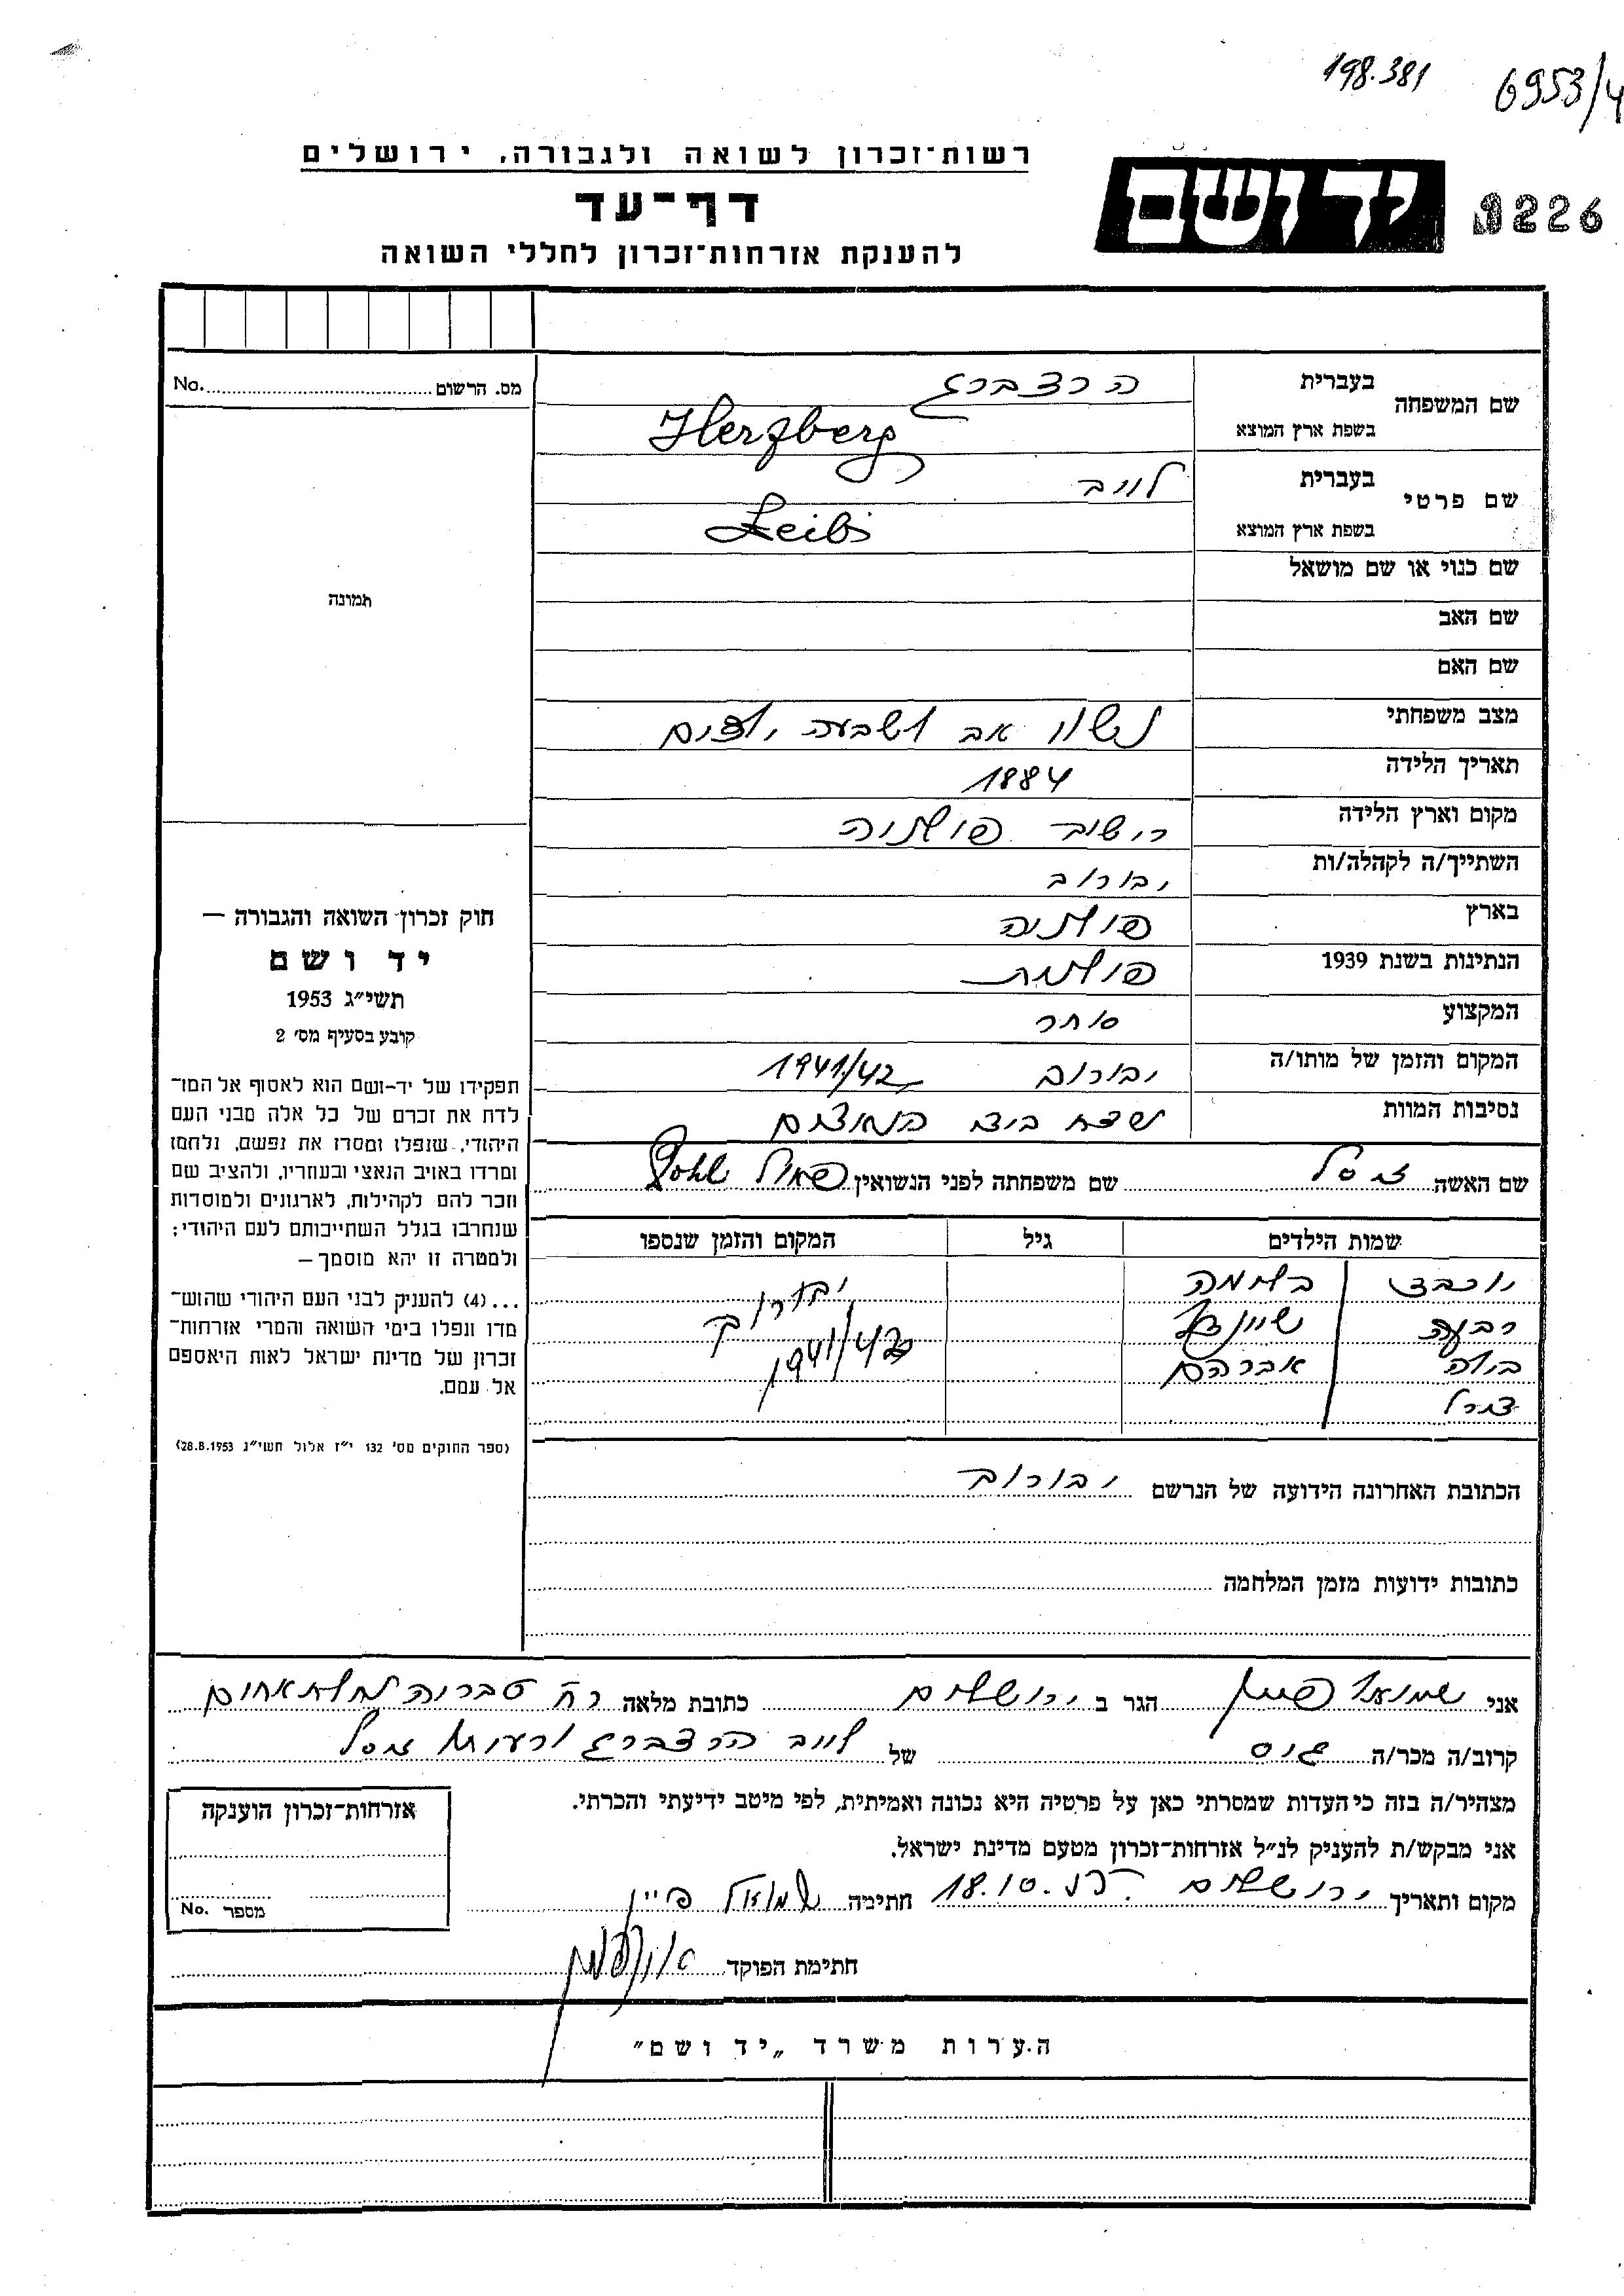 198.381
6953/4
רשות־זכרון לשואה ולגבורה, ירושלים
יד ושם
226
דף־עד
להענקת אזרחות־זכרון לחללי השואה
מס. הרשום No.
שם המשפחה
בעברית הרצברג
בשפת ארץ המוצא Herzberg
שם פרטי
בעברית לייב
בשפת ארץ המוצא Leib
שם כנוי או שם מושאל
שם האב
שם האם
מצב משפחתי נשוי אב ושבעה ילדים
תאריך הלידה 1884
מקום וארץ הלידה רישוב פולניה
השתייך/ה לקהלה/ות יבורוב
בארץ פולניה
הנתינות בשנת 1939 פולנית
המקצוע סוחר
המקום והזמן של מותו/ה יבורוב 1941/42
נסיבות המוות נשחט ביד הנאצים
תמונה
חוק זכרון השואה והגבורה —
יד ושם
תשי״ג 1953
קובע בסעיף מס׳ 2
תפקידו של יד-ושם הוא לאסוף אל המו־
לדת את זכרם של כל אלה מבני העם
היהודי, שנפלו ומסרו את נפשם, נלחמו
ומרדו באויב הנאצי ובעוזריו, ולהציב שם
וזכר להם לקהילות, לארגונים ולמוסדות
שנחרבו בגלל השתייכותם לעם היהודי;
ולמטרה זו יהא מוסמך —
...(4) להעניק לבני העם היהודי שהוש־
מדו ונפלו בימי השואה והמרי אזרחות־
זכרון של מדינת ישראל לאות היאספם
אל עמם.
(ספר החוקים מס׳ 132 י״ז אלול תשי״ג 28.8.1953)
שם האשה שם משפחתה לפני הנשואין Pohl
שמות הילדים גיל המקום והזמן שנספו
יוכבד נחמה יבורוב
רבקה שיינדל 1941/42
בילה אברהם
צירל
הכתובת האחרונה הידועה של הנרשם יבורוב
כתובות ידועות מזמן המלחמה
אני שמואל פיין הגר ב ירושלים כתובת מלאה רח׳ טבריה נחלת אחים
קרוב/ה מכר/ה גיס של לייב הרצברג ורעיתו
מצהיר/ה בזה כי העדות שמסרתי כאן על פרטיה היא נכונה ואמיתית, לפי מיטב ידיעתי והכרתי.
אני מבקש/ת להעניק לנ״ל אזרחות־זכרון מטעם מדינת ישראל.
מקום ותאריך ירושלים 18.10. חתימה שמואל פיין
חתימת הפוקד
אזרחות־זכרון הוענקה
מספר No.
הערות משרד „יד ושם״